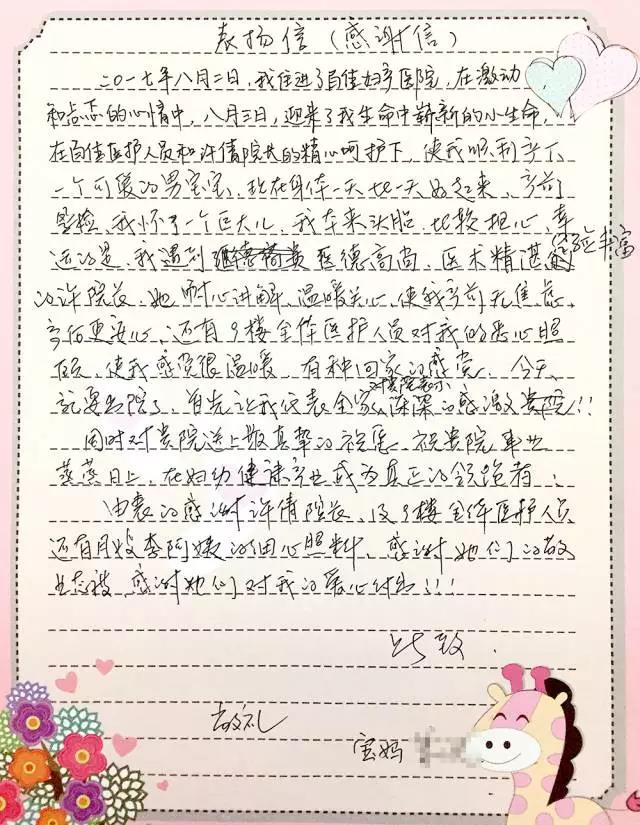 表扬信（感谢信）
二〇一七年八月二日，我住进了百佳妇产医院，在激动
和忐忑的心情中，八月三日，迎来了我生命中崭新的小生命，
在百佳医护人员和许倩院长的精心呵护下，使我顺利产下
一个可爱的男宝宝，现在身体一天比一天好起来，产前
我怀了一个巨大儿，我本来头胎，比较担心，幸
运的是，我遇到医德高尚、医术精湛、经验丰富
的许院长，她耐心讲解、温暖关心，使我产前无焦虑，
产后更安心，还有9楼全体医护人员对我的悉心照
顾，使我感觉很温暖，有种回家的感觉，今天
就要出院了，首先让我代表全家对贵院表示深深的感激!!
同时对贵院送上最真挚的祝愿，祝贵院事业
蒸蒸日上，在妇幼健康产业成为真正的领跑者！
由衷的感谢许倩院长，及9楼全体医护人员
还有月嫂李阿姨的细心照料，感谢她们的敬
业态度，感谢她们对我的爱心付出!!!
此致
敬礼
宝妈